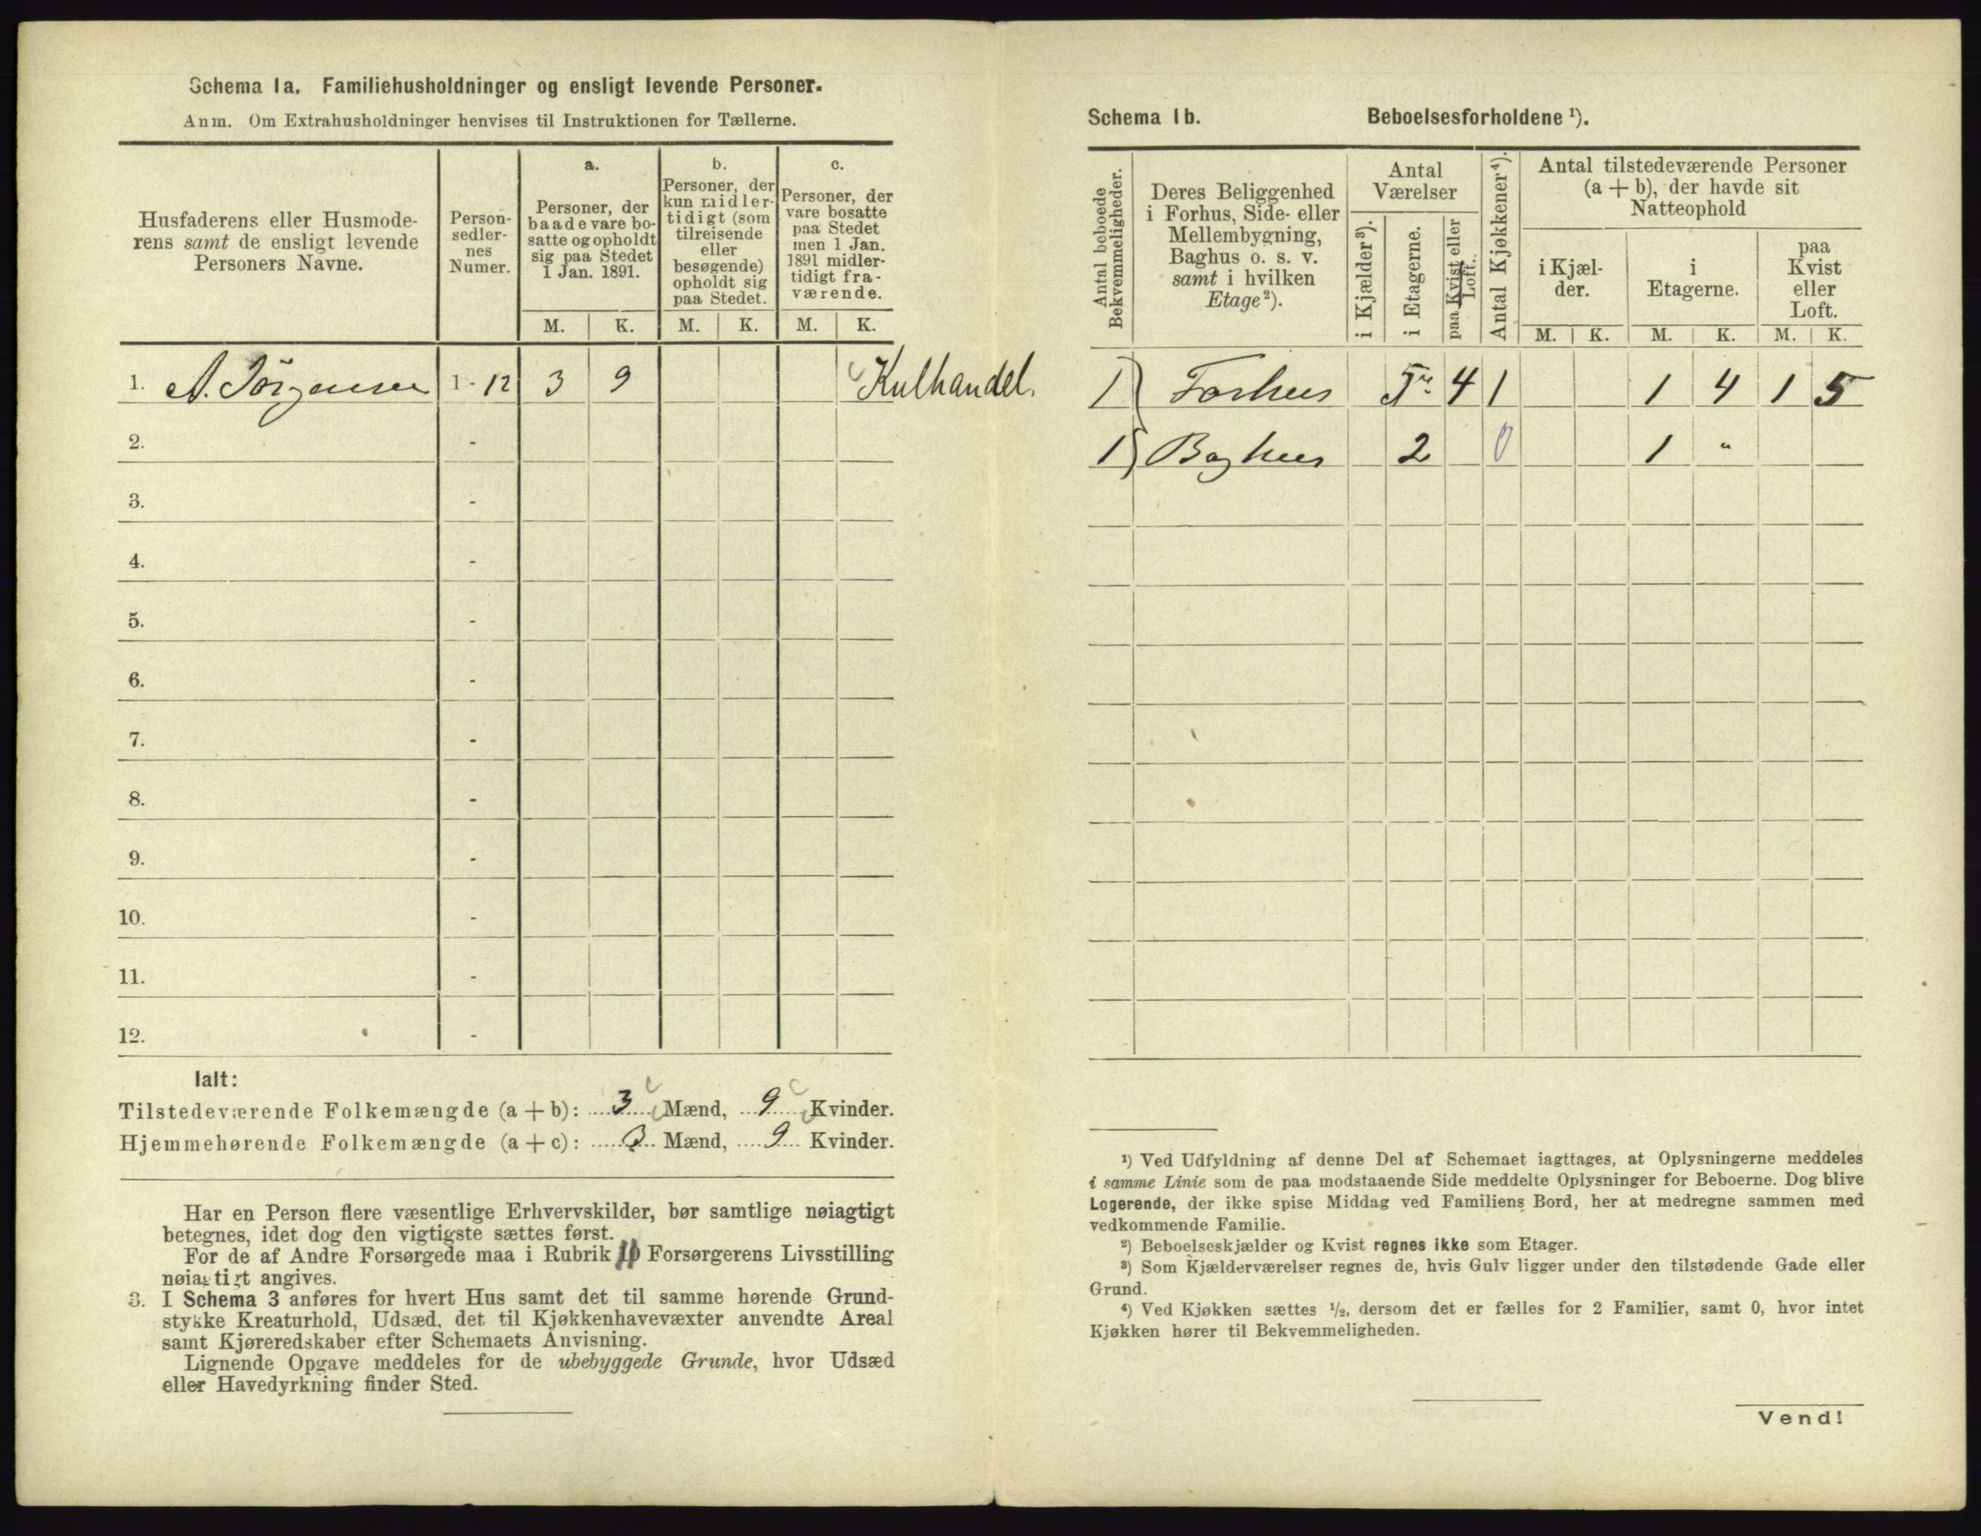 Schema 1a. Familiehusholdninger og ensligt levende Personer.
Anm. Om Extrahusholdninger henvises til Instruktionen for Tællerne.
Husfaderens eller Husmode-
rens samt de ensligt levende
Personers Navne.
Person-
sedler-
nes
Numer.
a.
Personer, der
baade vare bo-
satte og opholdt
sig paa Stedet
1 Jan. 1891.
b.
Personer, der
kun midler-
tidigt (som
tilreisende
eller
besøgende)
opholdt sig
paa Stedet.
c.
Personer, der
vare bosatte
paa Stedet
men 1 Jan.
1891 midler-
tidigt fra-
værende.
M. K. M. K. M. K.
1. A. Jörgensen 1 - 12 3 9 Kulhandel.
2. -
3. -
4. -
5. -
6. -
7. -
8. -
9. -
10. -
11. -
12. -
Ialt:
Tilstedeværende Folkemængde (a + b): 3 Mænd, 9 Kvinder.
Hjemmehørende Folkemængde (a + c): 3 Mænd, 9 Kvinder.
Har en Person flere væsentlige Erhvervskilder, bør samtlige nøiagtigt
betegnes, idet dog den vigtigste sættes først.
For de af Andre Forsørgede maa i Rubrik 10 Forsørgerens Livsstilling
nøiagtigt angives.
3. I Schema 3 anføres for hvert Hus samt det til samme hørende Grund-
stykke Kreaturhold, Udsæd, det til Kjøkkenhavevæxter anvendte Areal
samt Kjøreredskaber efter Schemaets Anvisning.
Lignende Opgave meddeles for de ubebyggede Grunde, hvor Udsæd
eller Havedyrkning finder Sted.
Schema 1b. Beboelsesforholdene ¹).
Antal beboede
Bekvemmeligheder.
Deres Beliggenhed
i Forhus, Side- eller
Mellembygning,
Baghus o. s. v.
samt i hvilken
Etage ²).
Antal
Værelser
i Kjælder ³).
i Etagerne.
paa Kvist eller
Loft.
Antal Kjøkkener ⁴).
Antal tilstedeværende Personer
(a + b), der havde sit
Natteophold
i Kjæl-
der.
i
Etagerne.
paa
Kvist
eller
Loft.
M. K. M. K. M. K.
1) Forhus 5 4 1 1 4 1 5
1) Baghus 2 0 1 "
¹) Ved Udfyldning af denne Del af Schemaet iagttages, at Oplysningerne meddeles
i samme Linie som de paa modstaaende Side meddelte Oplysninger for Beboerne. Dog blive
Logerende, der ikke spise Middag ved Familiens Bord, her at medregne sammen med
vedkommende Familie.
²) Beboelseskjælder og Kvist regnes ikke som Etager.
³) Som Kjælderværelser regnes de, hvis Gulv ligger under den tilstødende Gade eller
Grund.
⁴) Ved Kjøkken sættes ½, dersom det er fælles for 2 Familier, samt 0, hvor intet
Kjøkken hører til Bekvemmeligheden.
Vend!